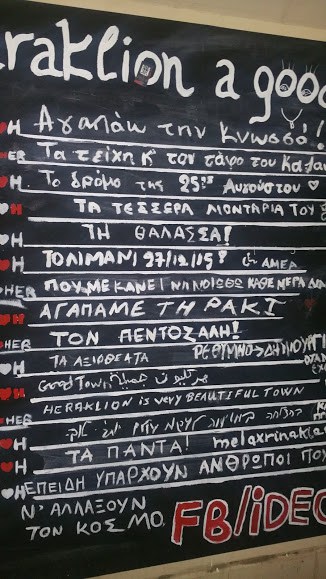 eraklion a good
♥H Αγαπάω την Κνωσό!
♥HER Τα τείχη κ' τον τάφο του Καζαν
♥H Το δρόμο της 25ης Αυγούστου ♥
♥H ΤΑ ΤΕΣΣΕΡΑ ΛΙΟΝΤΑΡΙΑ ΤΟΥ Σ
♥H ΤΗ ΘΑΛΑΣΣΑ!
♥H ΤΟ ΛΙΜΑΝΙ 27/12/15 ΑΜΕΑ
♥HER ΠΟΥ ΜΕ ΚΑΝΕΙ ΝΑ ΝΟΙΩΘΩ ΚΑΘΕ ΜΕΡΑ
♥H ΑΓΑΠΑΜΕ ΤΗ ΡΑΚΙ
♥HER ΤΟΝ ΠΕΝΤΟΖΑΛΗ!
♥H ΤΑ ΑΞΙΟΘΕΑΤΑ ΡΕΘΥΜΝΟ->ΔΗΜΙΟΥΡΓΙ
♥H Good Town جميلة
♥H HERAKLION is very BEAUTIFUL TOWN
♥HER
♥H ΤΑ ΠΑΝΤΑ! melaxrinaki
♥H ΕΠΕΙΔΗ ΥΠΑΡΧΟΥΝ ΑΝΘΡΩΠΟΙ ΠΟΥ
Ν' ΑΛΛΑΞΟΥΝ
ΤΟΝ ΚΟΣΜΟ
FB/iDEO